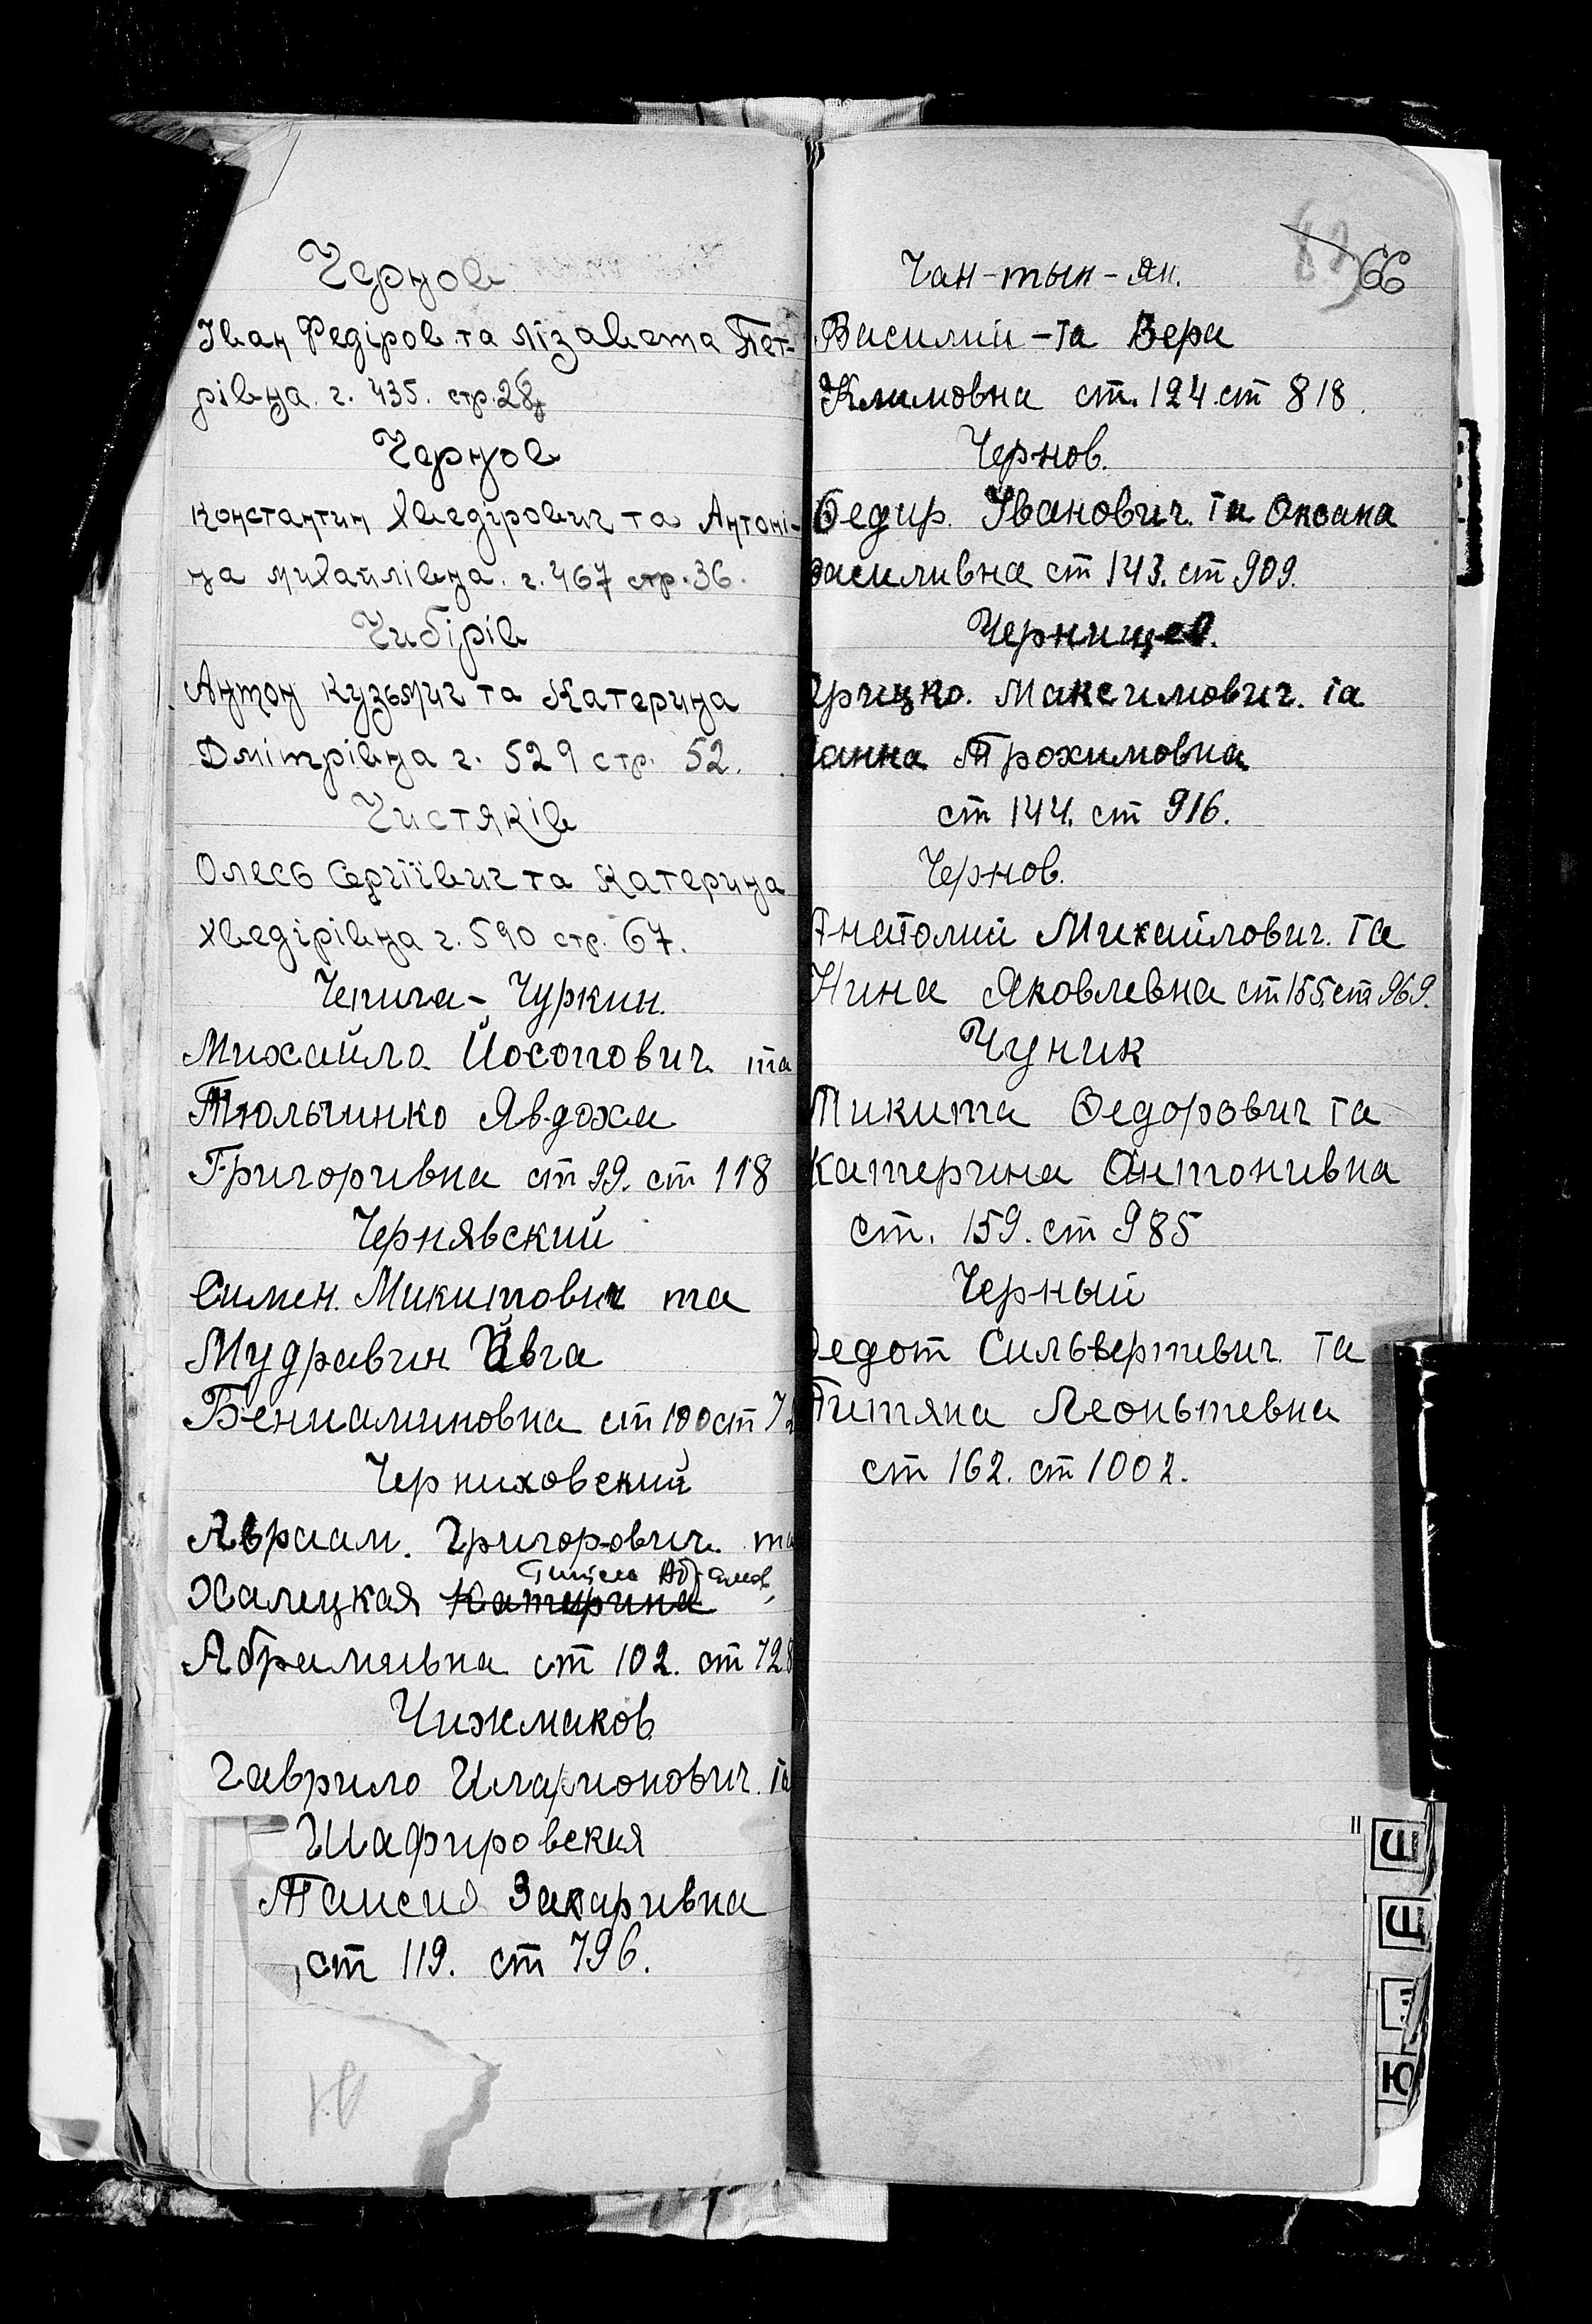 Чернов
Іван Федіров та Лізавета Пет-
рівна. г. 435. стр. 28
Чернов
Константин Хведірович та Антоні-
на Михайлівна. г. 467 стр. 36.
Чибірів
Антон Кузьмич та Катерина
Дмітрівна г. 529 стр. 52.
Чистяків
Олесь Сергіївич та Катерина
Хведірівна г. 590 стр. 67.
Чепига - Чуркин.
Михайло Йосопович та
Тюльчинко Явдоха
Григоривна ст 99. ст 118
Чернявский
Симен. Микитович та
Мудравин Ївга
Бениаминовна ст 100 ст 7
Черниховский
Авраам. Григорович та
Абрамов,
Халецкая Катирина
Абрамивна ст 102. ст 728
Чижмаков
Гаврило Иларионович. та
Шафировская
Таисия Захаривна
ст 119. ст 796.
66
Чан-тын-ян.
Василий - та Вера
Климовна ст. 124. ст 818.
Чернов.
Федир. Іванович. та Оксана
василивна ст 143. ст 909.
Чернищев.
Грицко. Максимович. та
Ганна Трохимовна
ст 144. ст 916.
Чернов.
Анатолий Михайлович. та
Нина Яковлевна ст 155. ст 969.
Чуник
Микита Федорович та
Катерина Антонивна
ст. 159. ст 985
Черный
Федот Сильвертевич. та
Титяна Леоньтевна
ст 162. ст 1002.
Ш
Щ
Ю